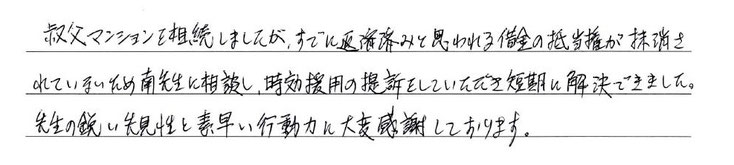 叔父マンションを相続しましたが、すでに返済済みと思われる借金の抵当権が抹消さ
れていないため南先生に相談し、時効援用の提訴をしていただき短期に解決できました。
先生の鋭い先見性と素早い行動力に大変感謝しております。